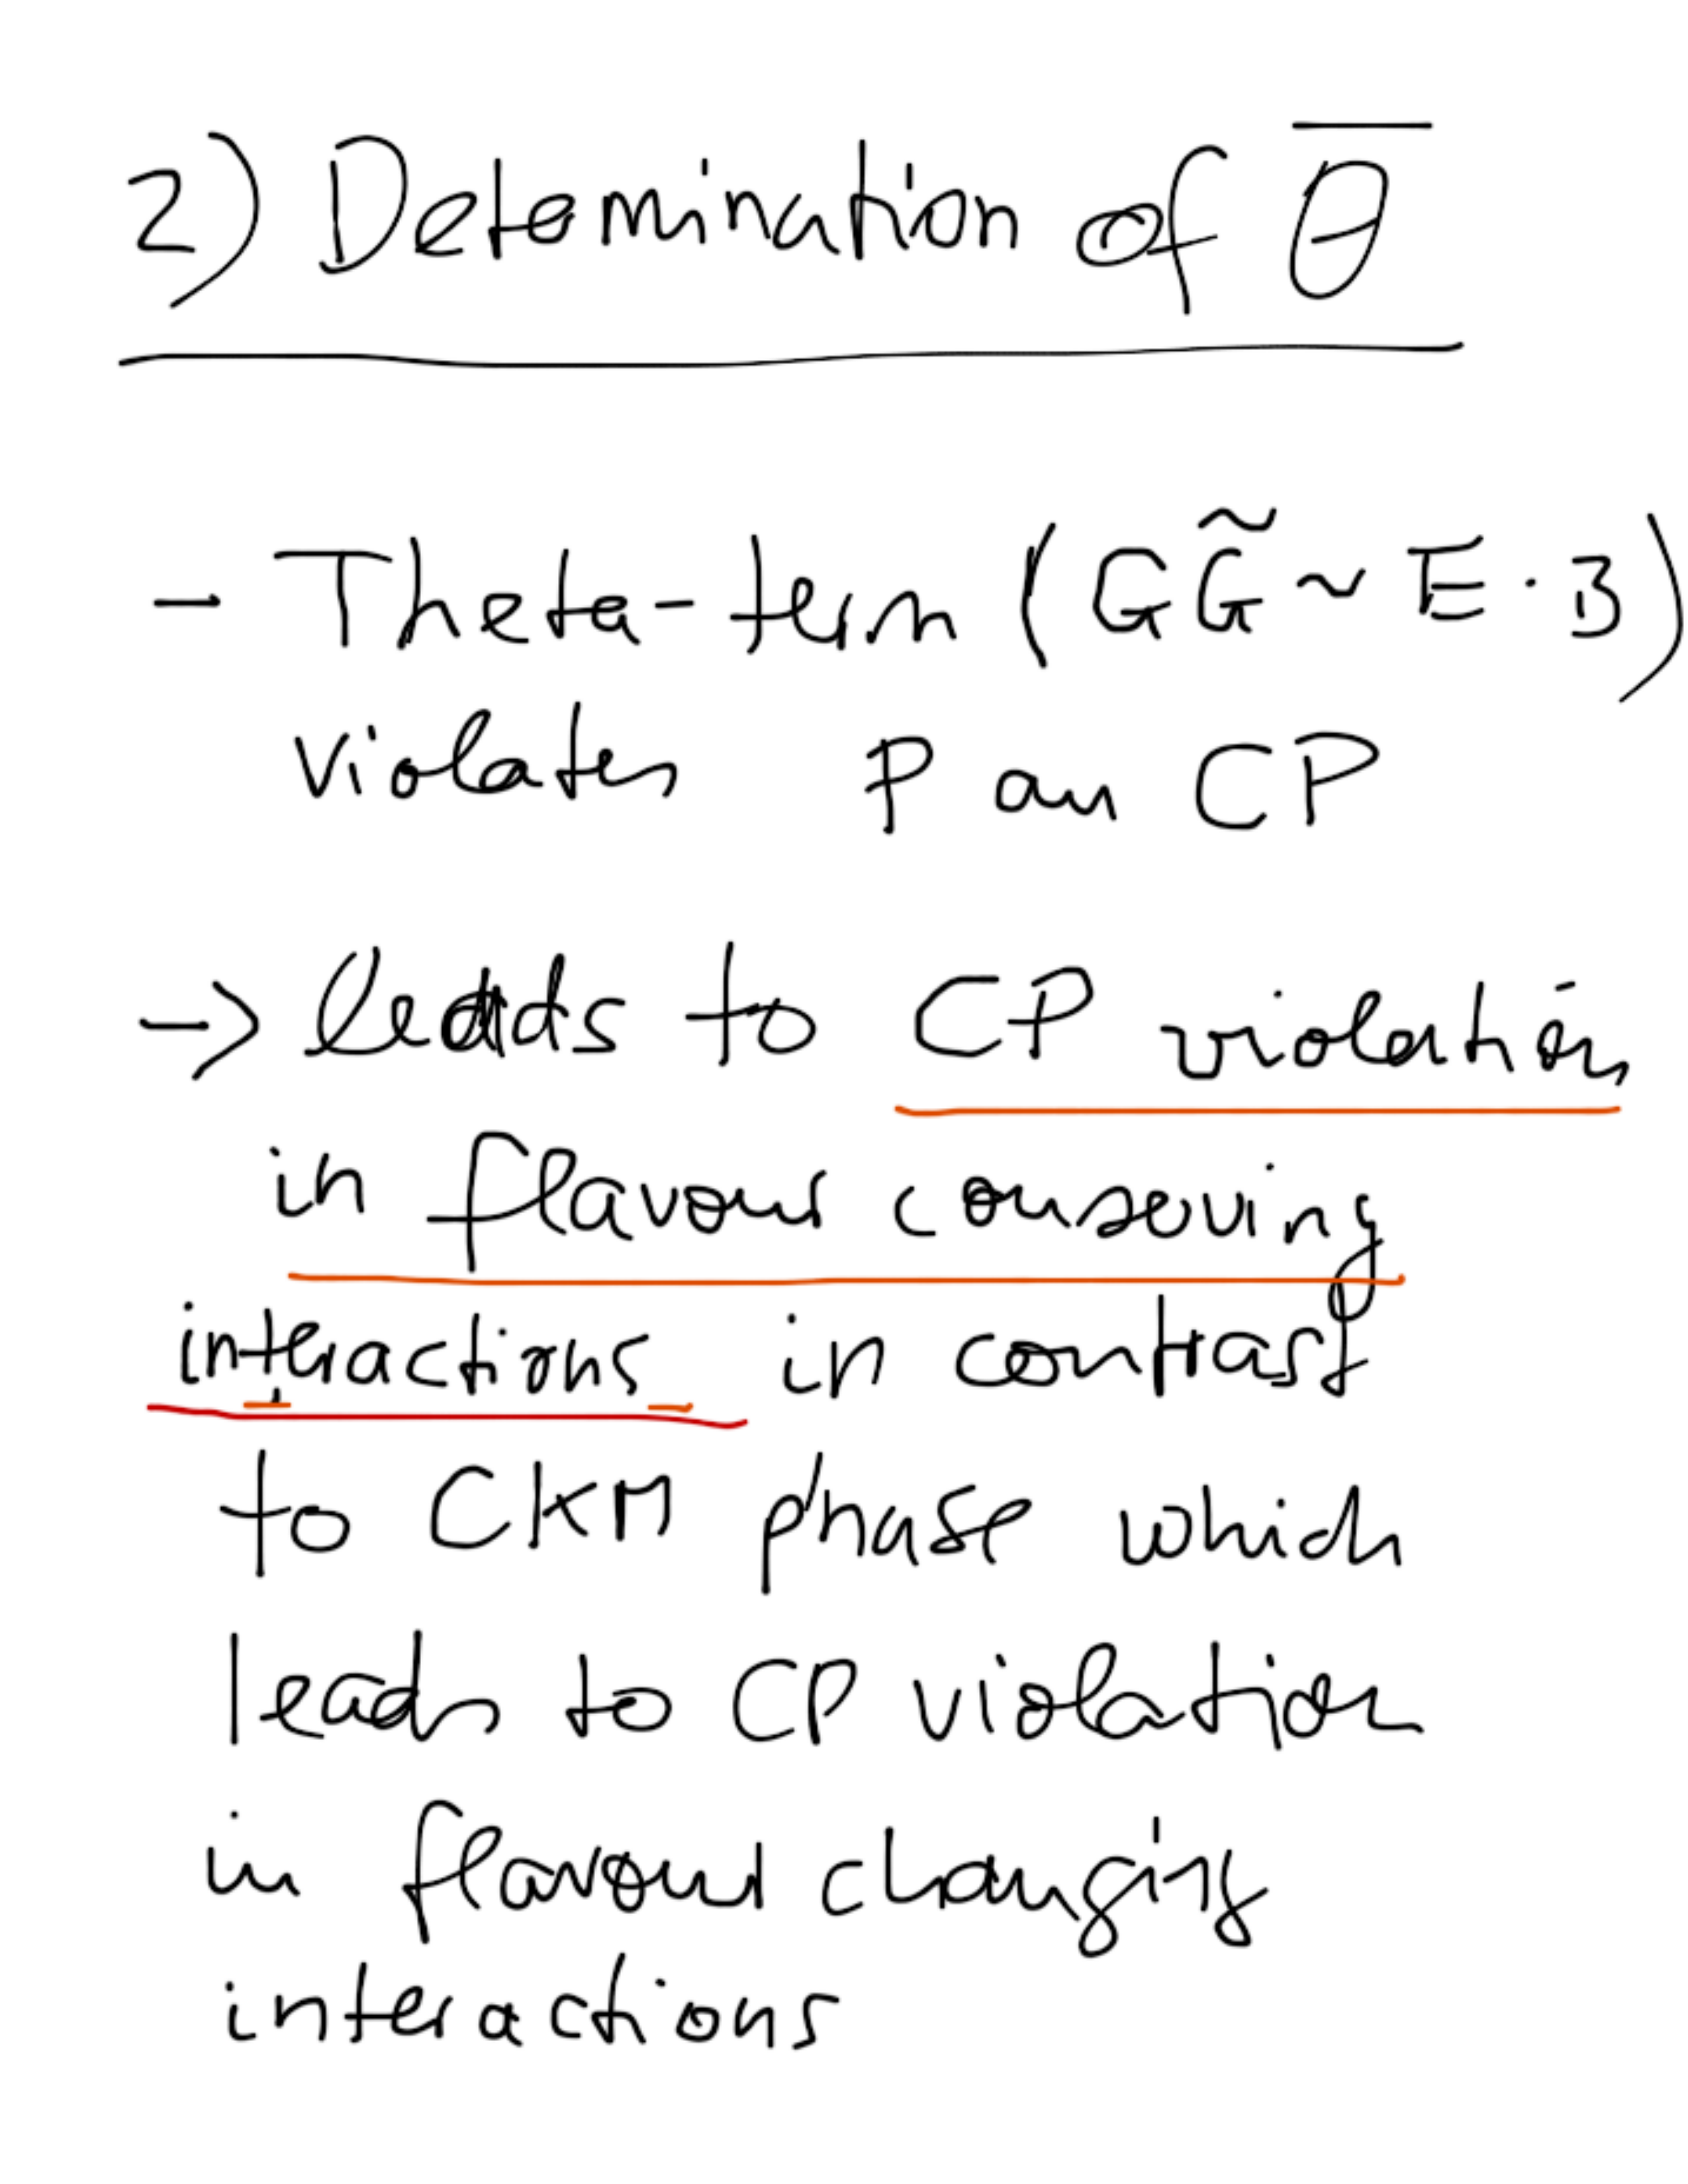 2) Determination of θ̅
- Theta-term (GG̃ ~ E · B)
violates P an CP
-> leads to CP violation
in flavour conserving
interactions in contrast
to CKM phase which
leads to CP violation
in flavour changing
interactions